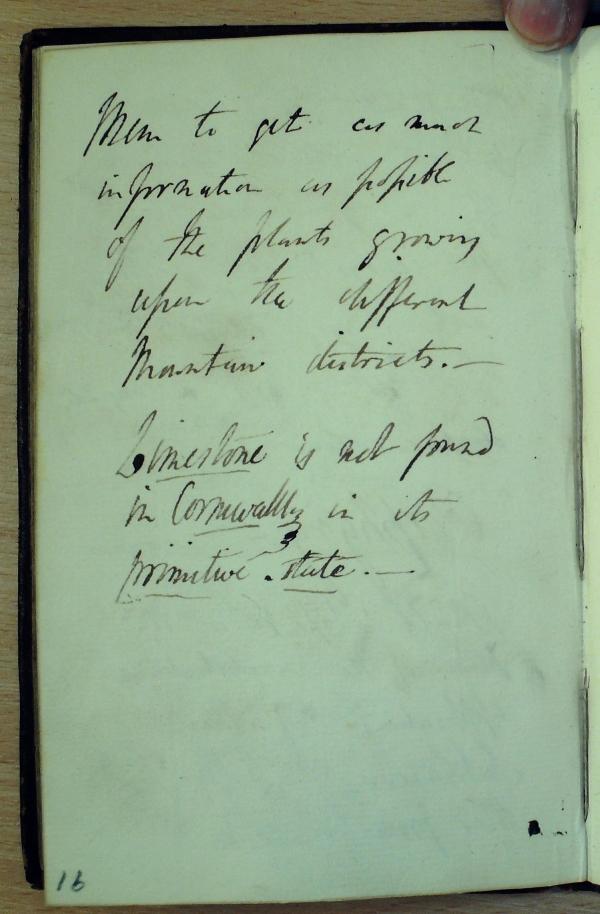 Mem to get as much
information as possible
of the plants growing
upon the different
Mountain districts.—
Limestone is not found
in Cornwall in its
primitive state.—
16